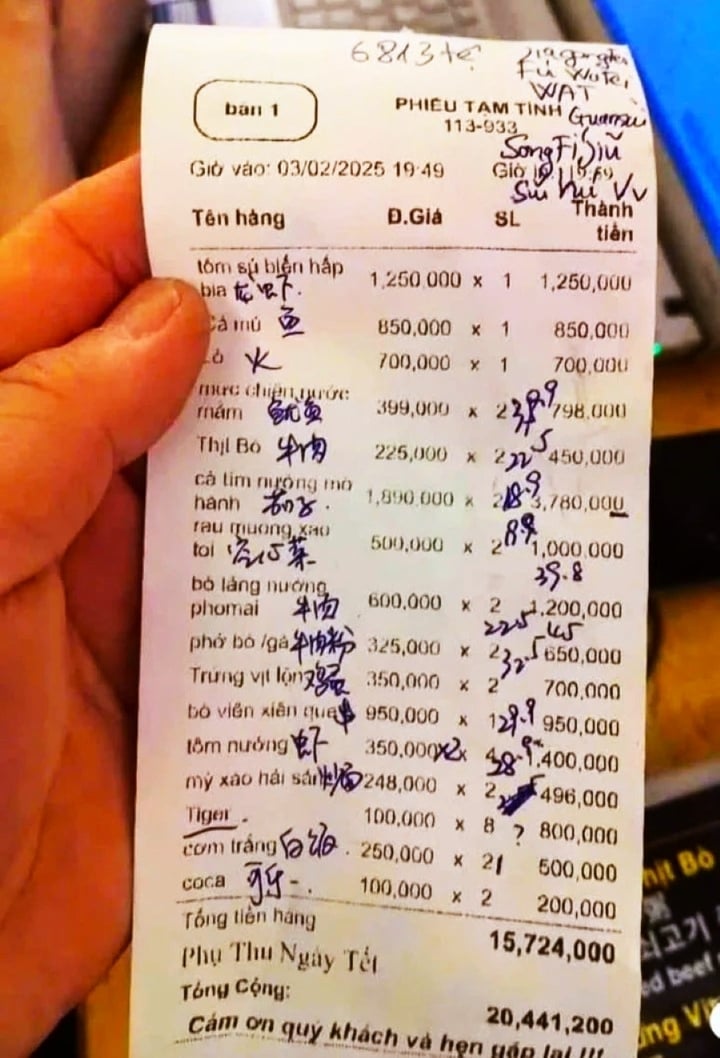 6813
WAT
bàn 1
PHIẾU TẠM TÍNH
113-933
Giờ vào: 03/02/2025 19:49 Giờ
Tên hàng Đ.Giá SL Thành tiền
tôm sú biển hấp
bia 龙虾. 1,250,000 x 1 1,250,000
Cá mú 鱼 850,000 x 1 850,000
火 700,000 x 1 700,000
mực chiên nước
mắm 鱿鱼 399,000 x 2 798,000
Thịt Bò 牛肉 225,000 x 2 450,000
cà tím nướng mỡ
hành 茄子. 1,890,000 x 2 3,780,000
rau muong xao
toi 空心菜 500,000 x 2 1,000,000
39.8
bò lảng nướng
phomai 牛肉 600,000 x 2 1,200,000
phở bò /gà 牛肉粉 325,000 x 2 650,000
Trứng vịt lộn 鸡蛋 350,000 x 2 700,000
bò viên xiên que 串 950,000 x 1 29.9 950,000
tôm nướng 虾 350,000 x2x 4 1,400,000
mỳ xào hải sản 炒面 248,000 x 2 496,000
Tiger. 100,000 x 8 ? 800,000
cơm trắng 白饭. 250,000 x 2 500,000
coca 100,000 x 2 200,000
Tổng tiền hàng 15,724,000
Phụ Thu Ngày Tết
Tổng Cộng: 20,441,200
Cảm ơn quý khách và hẹn gặp lại !!!
hịt Bò
쇠고기
ed beef